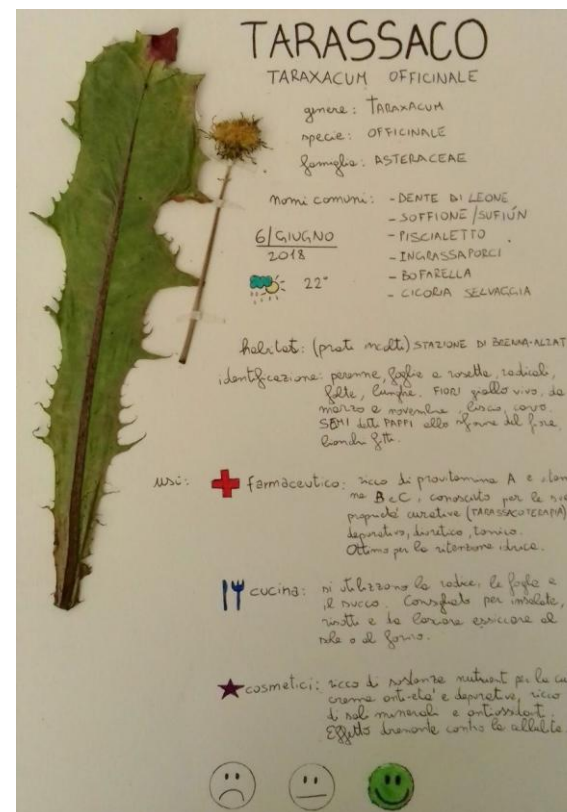 TARASSACO
TARAXACUM OFFICINALE
genere: TARAXACUM
specie: OFFICINALE
famiglia: ASTERACEAE
nomi comuni: - DENTE DI LEONE
- SOFFIONE/SUFIÚN
- PISCIALETTO
- INGRASSAPORCI
- BOFARELLA
- CICORIA SELVAGGIA
6/GIUGNO
2018
22°
habitat: (prati incolti) STAZIONE DI BRENNA-ALZAT
identificazione: perenne, foglie a rosetta, radicali,
folte, lunghe. FIORI giallo vivo, da
marzo a novembre, liscio, cavo.
SEMI detti PAPPI allo sfiorire del fiore,
bianchi fitti.
usi:
farmaceutico: ricco di provitamina A e
B e C, conosciuto per le sue
proprietà curative (TARASSACOTERAPIA)
depurativo, diuretico, tonico.
Ottimo per la ritenzione idrica.
cucina: si utilizzano la radice, le foglie e
il succo. Consigliato per insalate,
risotti e da lasciare essiccare al
sole o al forno.
cosmetici: ricco di sostanze nutrienti per la
crema anti-età e depurative, ricco
di sali minerali e antiossidanti.
Effetto drenante contro la cellulite.